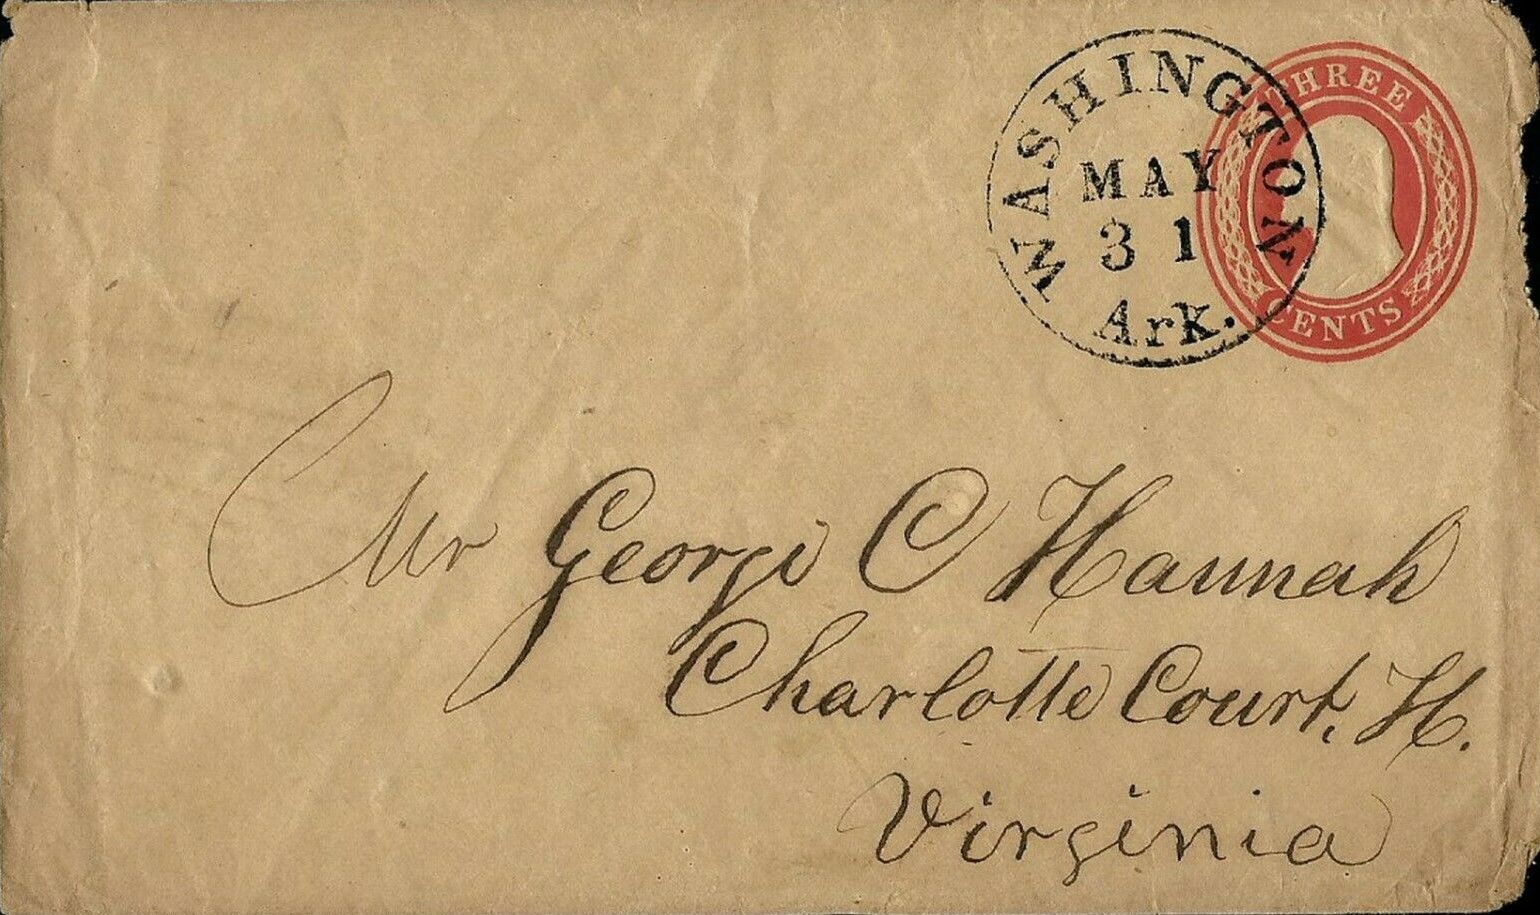 WASHINGTON
MAY
31
Ark.
THREE
CENTS
Mr George C Hannah
Charlotte Court, H.
Virginia